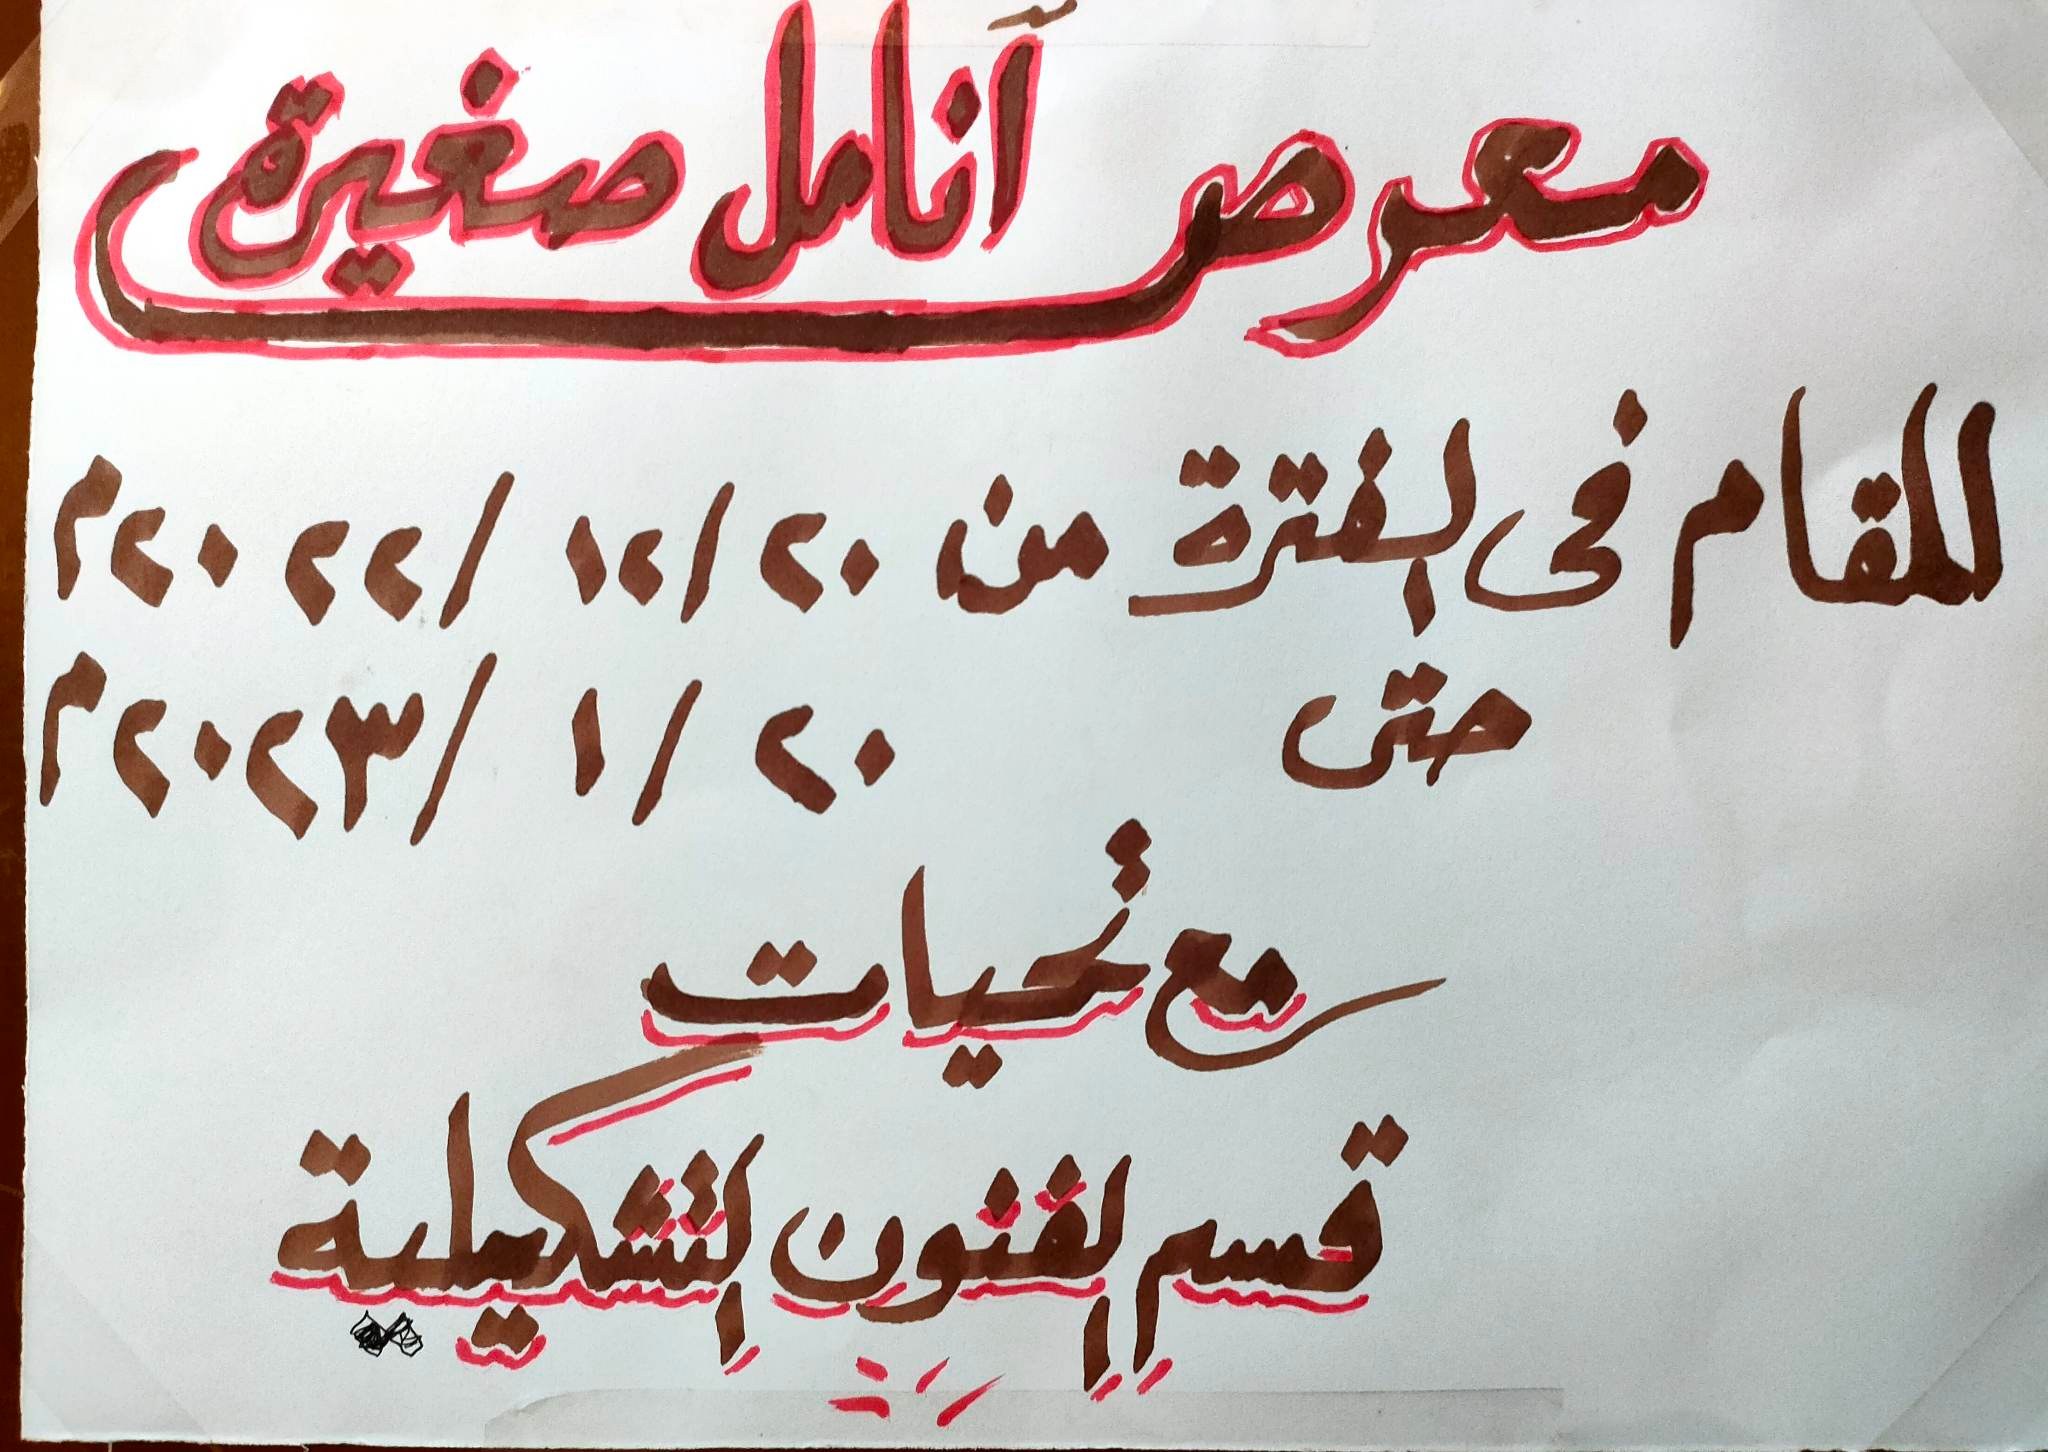 معرض أنامل صغيرة
للمقام فى الفترة من ٢٠/١٢/٢٠٢٢م
حتى ٢٠/١/٢٠٢٣م
مع تحيات
قسم الفنون التشكيلية